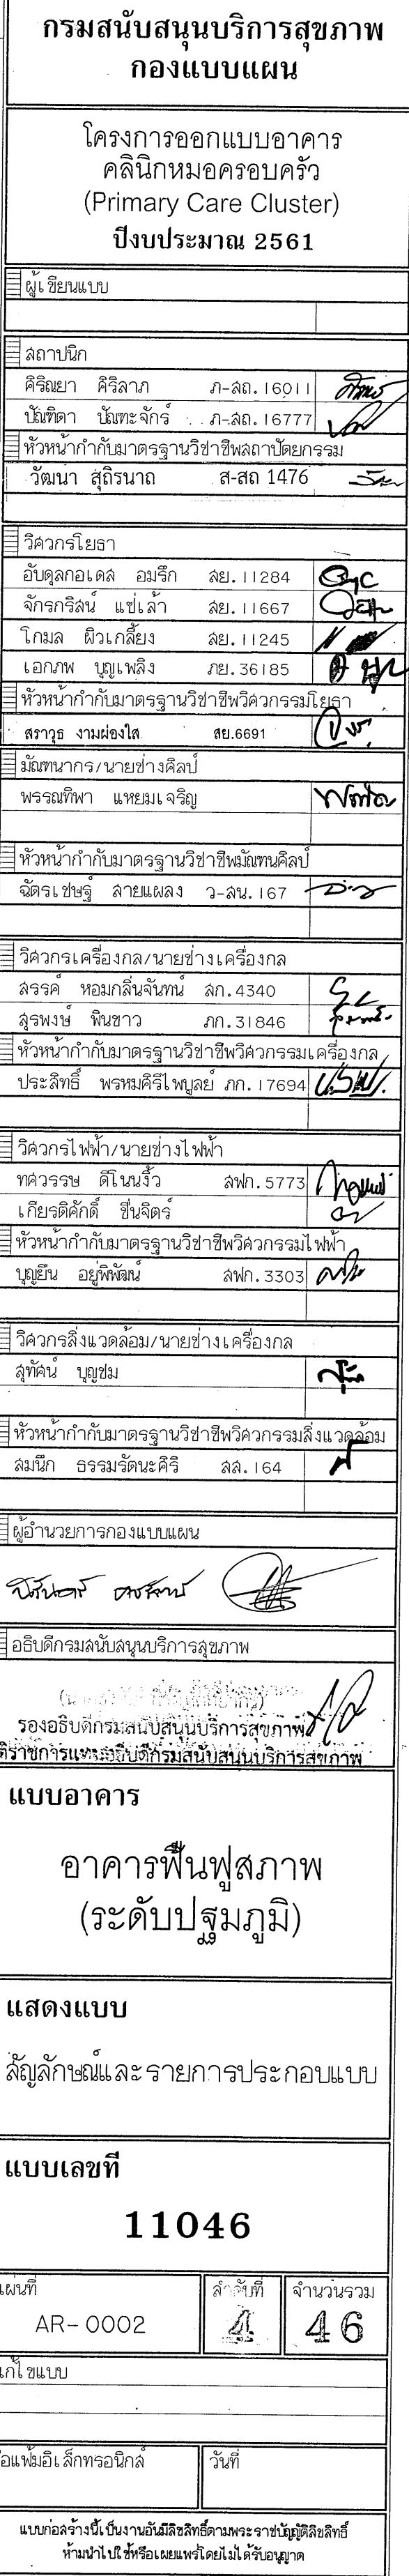 กรมสนับสนุนบริการสุขภาพ
กองแบบแผน
โครงการออกแบบอาคาร
คลินิกหมอครอบครัว
(Primary Care Cluster)
ปีงบประมาณ 2561
ผู้เขียนแบบ
สถาปนิก
ศิริณยา ศิริลาภ ภ-สถ.16011
ปัณฑิตา ปัณฑะจักร์ ภ-สถ.16777
หัวหน้ากำกับมาตรฐานวิชาชีพสถาปัตยกรรม
วัฒนา สุถิรนาถ ส-สถ 1476
วิศวกรโยธา
อับดุลกอเดล อมรึก สย.11284
จักรกริสน์ แซ่เล้า สย.11667
โกมล ผิวเกลี้ยง สย.11245
เอกภพ บุญเพลิง ภย.36185
หัวหน้ากำกับมาตรฐานวิชาชีพวิศวกรรมโยธา
สราวุธ งามผ่องใส สย.6691
มัณฑนากร/นายช่างศิลป์
พรรณทิพา แหยมเจริญ
หัวหน้ากำกับมาตรฐานวิชาชีพมัณฑนศิลป์
ฉัตรเชษฐ์ สายแผลง ว-สน.167
วิศวกรเครื่องกล/นายช่างเครื่องกล
สรรค์ หอมกลิ่นจันทน์ สก.4340
สุรพงษ์ พินขาว ภก.31846
หัวหน้ากำกับมาตรฐานวิชาชีพวิศวกรรมเครื่องกล
ประสิทธิ์ พรหมคิรีไพบูลย์ ภก.17694
วิศวกรไฟฟ้า/นายช่างไฟฟ้า
ทศวรรษ ดีโนนงิ้ว สฟก.5773
เกียรติศักดิ์ ชื่นจิตร์
หัวหน้ากำกับมาตรฐานวิชาชีพวิศวกรรมไฟฟ้า
บุญยืน อยู่พิพัฒน์ สฟก.3303
วิศวกรสิ่งแวดล้อม/นายช่างเครื่องกล
สุทัศน์ บุญชม
หัวหน้ากำกับมาตรฐานวิชาชีพวิศวกรรมสิ่งแวดล้อม
สมนึก ธรรมรัตนะคิรี สส.164
ผู้อำนวยการกองแบบแผน
อธิบดีกรมสนับสนุนบริการสุขภาพ
รองอธิบดีกรมสนับสนุนบริการสุขภาพ
ติราชการแทนอธิบดีกรมสนับสนุนบริการสุขภาพ
แบบอาคาร
อาคารฟื้นฟูสภาพ
(ระดับปฐมภูมิ)
แสดงแบบ
สัญลักษณ์และรายการประกอบแบบ
แบบเลขที่
11046
แผ่นที่ ลำดับที่ จำนวนรวม
AR-0002 4 46
แก้ไขแบบ
ชื่อแฟ้มอิเล็กทรอนิกส์ วันที่
แบบก่อสร้างนี้เป็นงานอันมีลิขสิทธิ์ตามพระราชบัญญัติลิขสิทธิ์
ห้ามนำไปใช้หรือเผยแพร่โดยไม่ได้รับอนุญาต